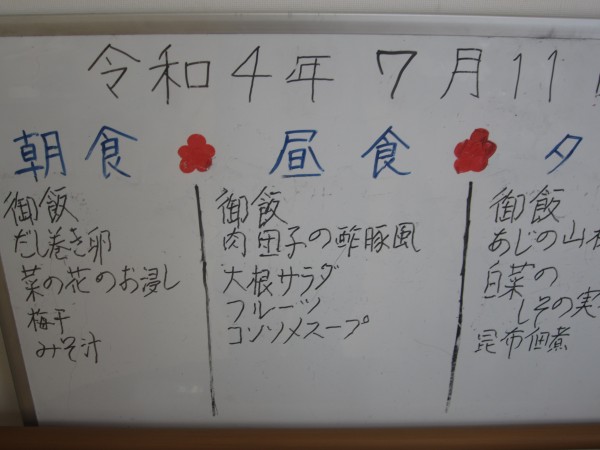 令和4年 7月11
朝食
御飯
だし巻き卵
菜の花のお浸し
梅干
みそ汁
昼食
御飯
肉団子の酢豚風
大根サラダ
フルーツ
コンソメスープ
夕
御飯
あじの山
白菜の
しその実
昆布佃煮